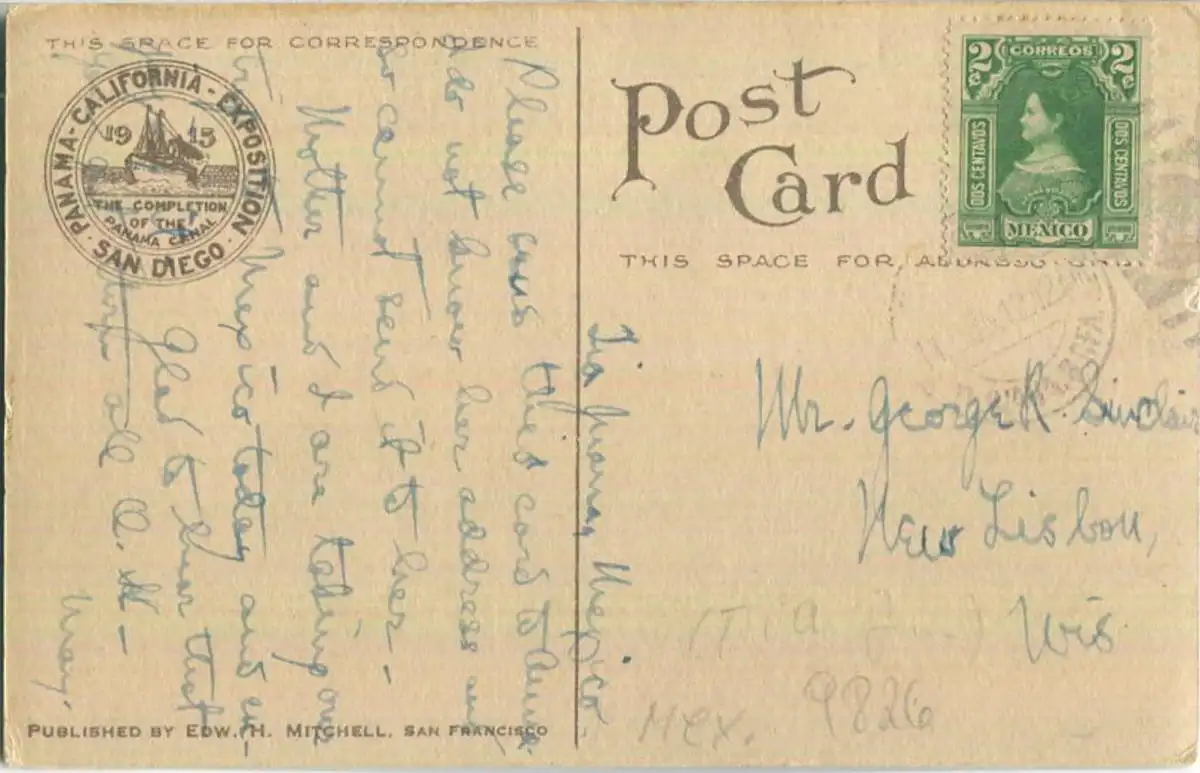 THIS SPACE FOR CORRESPONDENCE
PANAMA-CALIFORNIA-EXPOSITION
1915
THE COMPLETION
OF THE
PANAMA CANAL
SAN DIEGO
POST
CARD
THIS SPACE FOR ADDRESS ONLY
2c CORREOS 2c
DOS CENTAVOS
DOS CENTAVOS
MEXICO
Tia Juana, Mexico.
Please this card to
do not know her address and
so cannot send it to her -
Mother and I are taking our
trip Mexico today and
Glad to hear that
all O.K -
May.
Mr. George R. Sinclair
New Lisbon,
Wis
(Tia J....)
Mex. 9826
PUBLISHED BY EDW. H. MITCHELL, SAN FRANCISCO